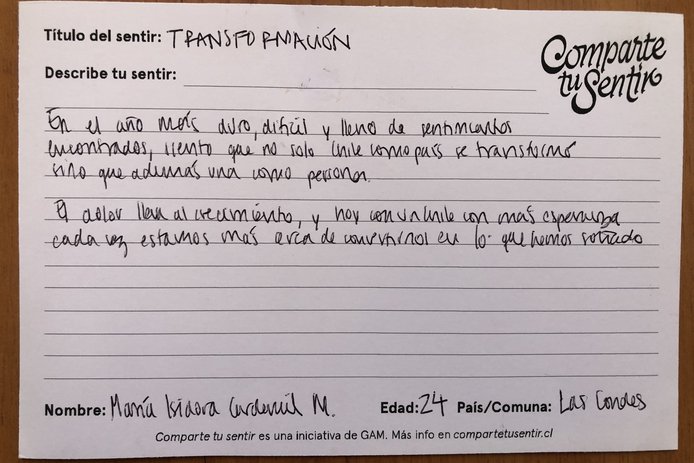 Título del sentir: TRANSFORMACIÓN
Comparte
tu
Sentir
Describe tu sentir:
En el año más duro, difícil y lleno de sentimientos
encontrados, siento que no solo Chile como país se transformó
sino que además una como persona.
El dolor lleva al crecimiento, y hoy con un Chile con más esperanza
cada vez estamos más cerca de convertirnos en lo que hemos soñado
Nombre: María Isidora Cardemil M.
Edad: 24 País/Comuna: Las Condes
Comparte tu sentir es una iniciativa de GAM. Más info en compartetusentir.cl